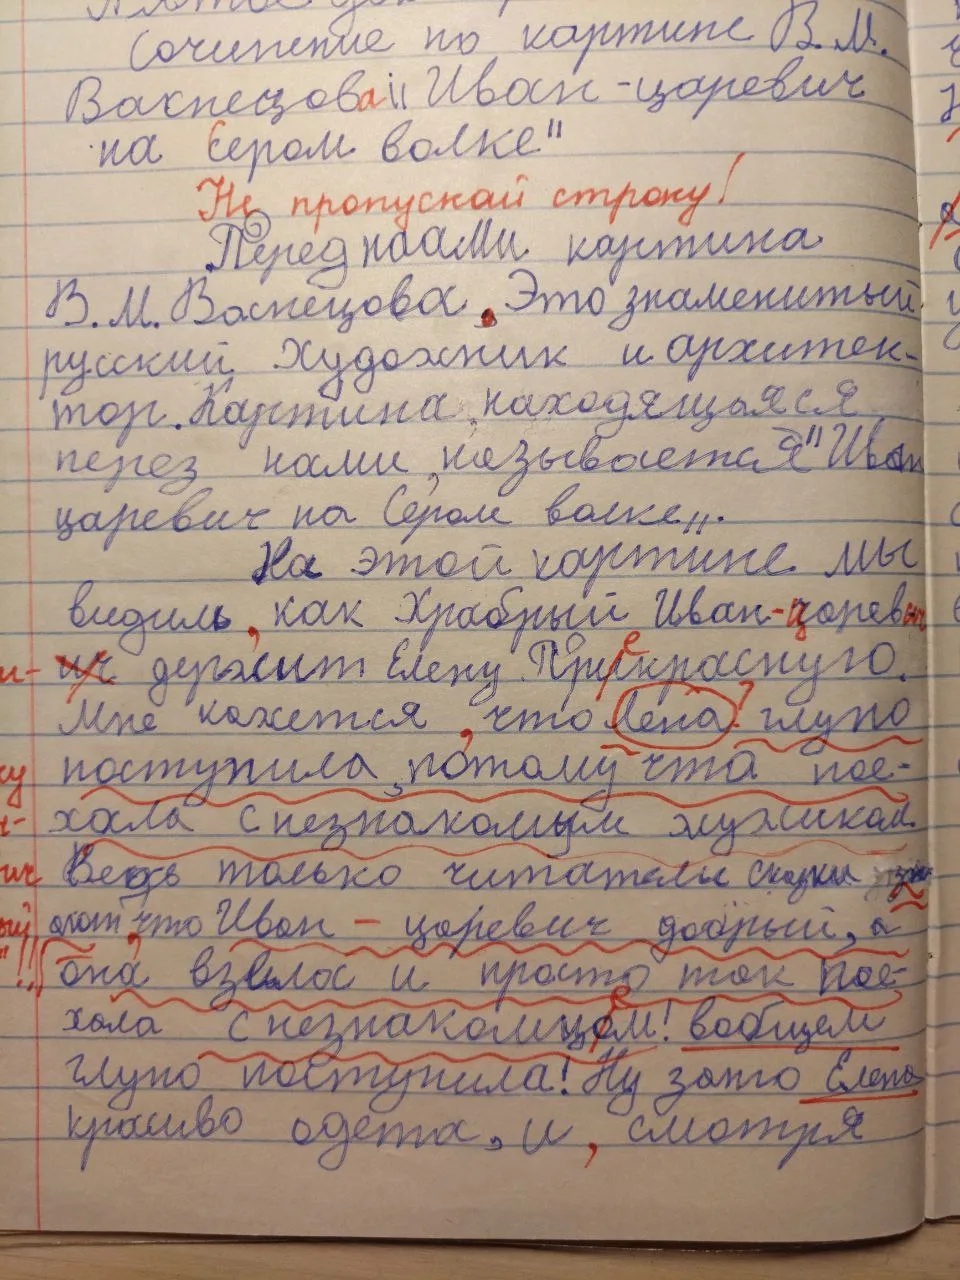 Сочинение по картине В.М.
Васнецова "Иван-царевич
на Сером волке"
Не пропускай строку!
Перед нами картина
В.М. Васнецова. Это знаменитый
русский художник и архитек-
тор. Картина, находящыяся
перез нами, называется "Иван
царевич на Сером волке".
На этой картине мы
видиль, как Храбрый Иван-царевич
держит Елену Прекрасную.
Мне кажется, что Лена глупо
поступила, потому что пое-
хала с незнакомым мужиком.
Ведь только читатели сказки
что Иван-царевич добрый, а
она взела и просто так пое-
хала с незнакомцем! вообщем
глупо поступила! Ну зато Елена
красиво одета, и, смотря